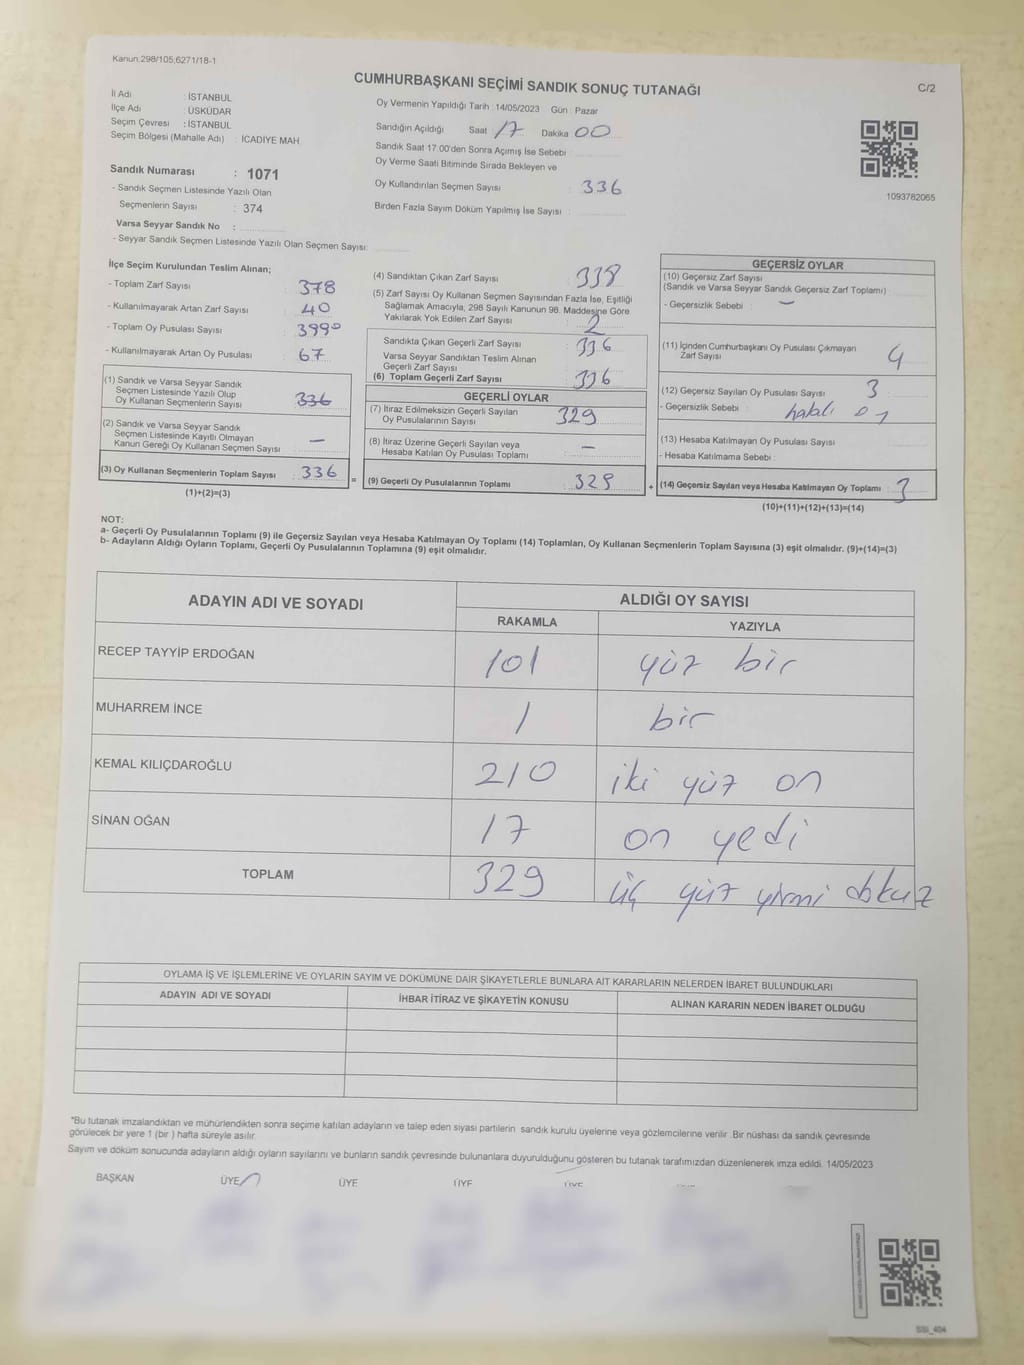 Kanun:298/105,6271/18-1
CUMHURBAŞKANI SEÇİMİ SANDIK SONUÇ TUTANAĞI
C/2
İl Adı : İSTANBUL
İlçe Adı : ÜSKÜDAR
Seçim Çevresi : İSTANBUL
Seçim Bölgesi (Mahalle Adı) : İCADİYE MAH.
Oy Vermenin Yapıldığı Tarih : 14/05/2023 Gün : Pazar
Sandığın Açıldığı Saat 17 Dakika 00
Sandık Saat 17.00'den Sonra Açımış İse Sebebi :
Oy Verme Saati Bitiminde Sırada Bekleyen ve
Oy Kullandırılan Seçmen Sayısı : 336
Birden Fazla Sayım Döküm Yapılmış İse Sayısı :
1093782065
Sandık Numarası : 1071
- Sandık Seçmen Listesinde Yazılı Olan
Seçmenlerin Sayısı : 374
Varsa Seyyar Sandık No :
- Seyyar Sandık Seçmen Listesinde Yazılı Olan Seçmen Sayısı:
İlçe Seçim Kurulundan Teslim Alınan;
- Toplam Zarf Sayısı : 378
- Kullanılmayarak Artan Zarf Sayısı : 40
- Toplam Oy Pusulası Sayısı : 399
- Kullanılmayarak Artan Oy Pusulası : 67
(1) Sandık ve Varsa Seyyar Sandık
Seçmen Listesinde Yazılı Olup
Oy Kullanan Seçmenlerin Sayısı : 336
(2) Sandık ve Varsa Seyyar Sandık
Seçmen Listesinde Kayıtlı Olmayan
Kanun Gereği Oy Kullanan Seçmen Sayısı : —
(3) Oy Kullanan Seçmenlerin Toplam Sayısı : 336
(1)+(2)=(3)
(4) Sandıktan Çıkan Zarf Sayısı : 338
(5) Zarf Sayısı Oy Kullanan Seçmen Sayısından Fazla İse, Eşitliği
Sağlamak Amacıyla, 298 Sayılı Kanunun 98. Maddesine Göre
Yakılarak Yok Edilen Zarf Sayısı : 2
Sandıkta Çıkan Geçerli Zarf Sayısı : 336
Varsa Seyyar Sandıktan Teslim Alınan
Geçerli Zarf Sayısı
(6) Toplam Geçerli Zarf Sayısı : 336
GEÇERLİ OYLAR
(7) İtiraz Edilmeksizin Geçerli Sayılan
Oy Pusulalarının Sayısı : 329
(8) İtiraz Üzerine Geçerli Sayılan veya
Hesaba Katılan Oy Pusulası Toplamı : —
= (9) Geçerli Oy Pusulalarının Toplamı : 329
GEÇERSİZ OYLAR
(10) Geçersiz Zarf Sayısı
(Sandık ve Varsa Seyyar Sandık Geçersiz Zarf Toplamı) :
- Geçersizlik Sebebi : —
(11) İçinden Cumhurbaşkanı Oy Pusulası Çıkmayan
Zarf Sayısı : 4
(12) Geçersiz Sayılan Oy Pusulası Sayısı : 3
- Geçersizlik Sebebi : hatalı oy
(13) Hesaba Katılmayan Oy Pusulası Sayısı :
- Hesaba Katılmama Sebebi :
+ (14) Geçersiz Sayılan veya Hesaba Katılmayan Oy Toplamı : 3
(10)+(11)+(12)+(13)=(14)
NOT:
a- Geçerli Oy Pusulalarının Toplamı (9) ile Geçersiz Sayılan veya Hesaba Katılmayan Oy Toplamı (14) Toplamları, Oy Kullanan Seçmenlerin Toplam Sayısına (3) eşit olmalıdır. (9)+(14)=(3)
b- Adayların Aldığı Oyların Toplamı, Geçerli Oy Pusulalarının Toplamına (9) eşit olmalıdır.
ADAYIN ADI VE SOYADI ALDIĞI OY SAYISI
RAKAMLA YAZIYLA
RECEP TAYYİP ERDOĞAN 101 yüz bir
MUHARREM İNCE 1 bir
KEMAL KILIÇDAROĞLU 210 iki yüz on
SİNAN OĞAN 17 on yedi
TOPLAM 329 üç yüz yirmi dokuz
OYLAMA İŞ VE İŞLEMLERİNE VE OYLARIN SAYIM VE DÖKÜMÜNE DAİR ŞİKAYETLERLE BUNLARA AİT KARARLARIN NELERDEN İBARET BULUNDUKLARI
ADAYIN ADI VE SOYADI İHBAR İTİRAZ VE ŞİKAYETİN KONUSU ALINAN KARARIN NEDEN İBARET OLDUĞU
*Bu tutanak imzalandıktan ve mühürlendikten sonra seçime katılan adayların ve talep eden siyasi partilerin sandık kurulu üyelerine veya gözlemcilerine verilir .Bir nüshası da sandık çevresinde
görülecek bir yere 1 (bir ) hafta süreyle asılır.
Sayım ve döküm sonucunda adayların aldığı oyların sayılarını ve bunların sandık çevresinde bulunanlara duyurulduğunu gösteren bu tutanak tarafımızdan düzenlenerek imza edildi. 14/05/2023
BAŞKAN ÜYE ÜYE ÜYE ÜYE